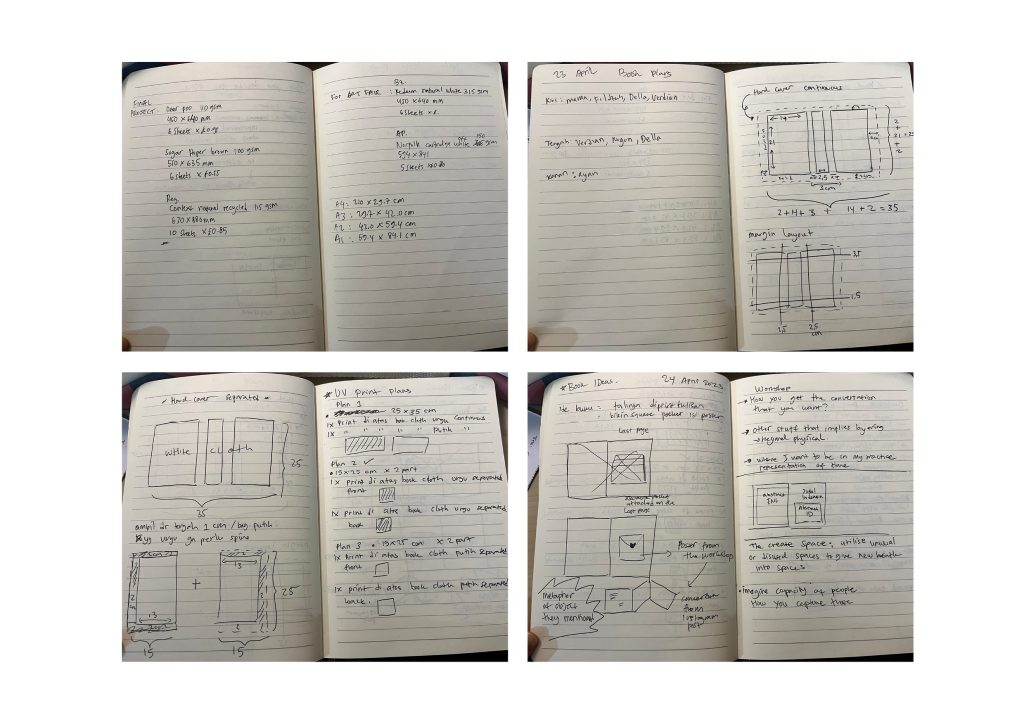 FINAL
PROJECT: Deer poo 110 gsm
450 x 640 mm
6 sheets x £0.95
Sugar paper brown 100 gsm
510 x 635 mm
6 sheets x £0.55
Reg.
Context natural recycled 115 gsm
620 x 880 mm
10 sheets x £0.85
For ART FAIR :
natural white 315 gsm
450 x 640 mm
6 sheets x £
AP.
Norfolk cartridge white 150 gsm
594 x 841
5 sheets
A4 : 210 x 29.7 cm
A3 : 29.7 x 42.0 cm
A2 : 42.0 x 59.4 cm
A1 : 59.4 x 84.1 cm
23 April Book plans
Kiri : mama, Filzah, Della, Verdian
Tengah : Verdian, Della
Kanan : Ryan
Hard cover continuous
14
21
2,5
3cm
2 + 21 + 2 = 25
2 + 14 + 3 + 14 + 2 = 35
margin layout
3,5
1,5
2,5
2,5
cm
* Hard cover separated *
white cloth
25
35
ambil dr tengah 1 cm / bag putih
yg ungu ga perlu spine
13
+
13
25
15
15
* UV Print plans
Plan 1
25 x 35 cm
1x Print di atas book cloth ungu continuous
1x " " " " Putih "
Plan 2 ✓
• 15 x 25 cm x 2 part
1x print di atas book cloth ungu separated
front
1x print di atas book cloth ungu separated
back
Plan 3 • 15 x 25 cm x 2 part
1x Print di atas book cloth putih separated
front
1x print di atas book cloth putih separated
back.
* Book Ideas. 24 April 2023
Ide buku : talinya diprint tulisan
: bikin square pocket isi poster
Last page
attached on the
Last page
Poster from
the workshop
metaphor
of object
they mentioned
from
instagram
post
Workshop
→ How you get the conversation
that you want?
→ Other stuff that implies layering
→ beyond physical
→ where I want to be in my practice
representation of time
Abstract
ENG
Abstract
ID
The create space : utilise unusual
or disused spaces to give new breath
into spaces
• Imagine capacity of people
How you capture those